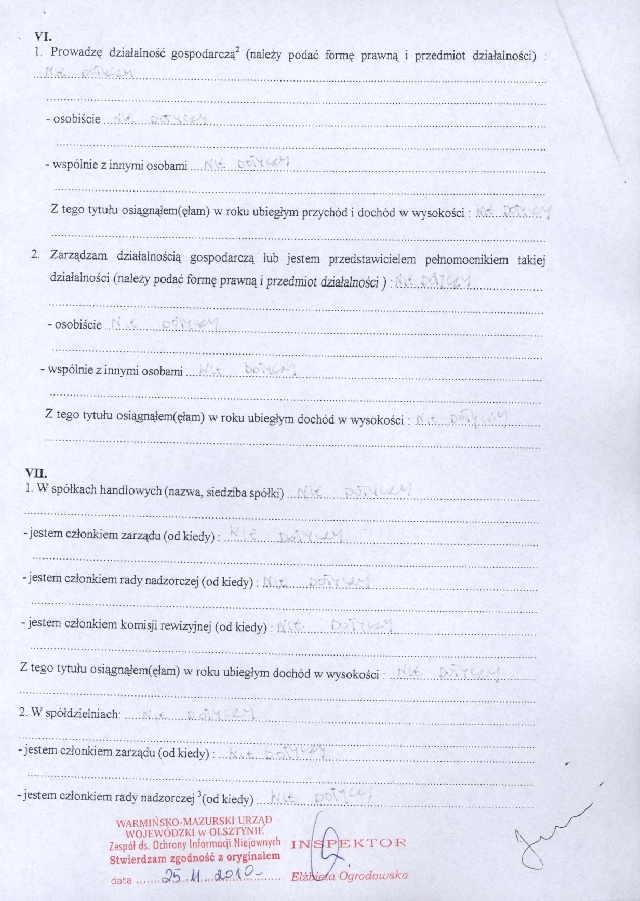 VI.
1. Prowadzę działalność gospodarczą² (należy podać formę prawną i przedmiot działalności) :
Nie dotyczy
- osobiście Nie dotyczy
- wspólnie z innymi osobami Nie dotyczy
Z tego tytułu osiągnąłem(ęłam) w roku ubiegłym przychód i dochód w wysokości : Nie dotyczy
2. Zarządzam działalnością gospodarczą lub jestem przedstawicielem pełnomocnikiem takiej
działalności (należy podać formę prawną i przedmiot działalności ) : Nie dotyczy
- osobiście Nie dotyczy
- wspólnie z innymi osobami Nie dotyczy
Z tego tytułu osiągnąłem(ęłam) w roku ubiegłym dochód w wysokości : Nie dotyczy
VII.
1. W spółkach handlowych (nazwa, siedziba spółki) Nie dotyczy
- jestem członkiem zarządu (od kiedy) : Nie dotyczy
- jestem członkiem rady nadzorczej (od kiedy) : Nie dotyczy
- jestem członkiem komisji rewizyjnej (od kiedy) : Nie dotyczy
Z tego tytułu osiągnąłem(ęłam) w roku ubiegłym dochód w wysokości : Nie dotyczy
2. W spółdzielniach: Nie dotyczy
- jestem członkiem zarządu (od kiedy) : Nie dotyczy
- jestem członkiem rady nadzorczej ³ (od kiedy) Nie dotyczy
WARMIŃSKO-MAZURSKI URZĄD
WOJEWÓDZKI w OLSZTYNIE
Zespół ds. Ochrony Informacji Niejawnych
Stwierdzam zgodność z oryginałem
data 25.11.2010-
INSPEKTOR
Elżbieta Ogrodowska